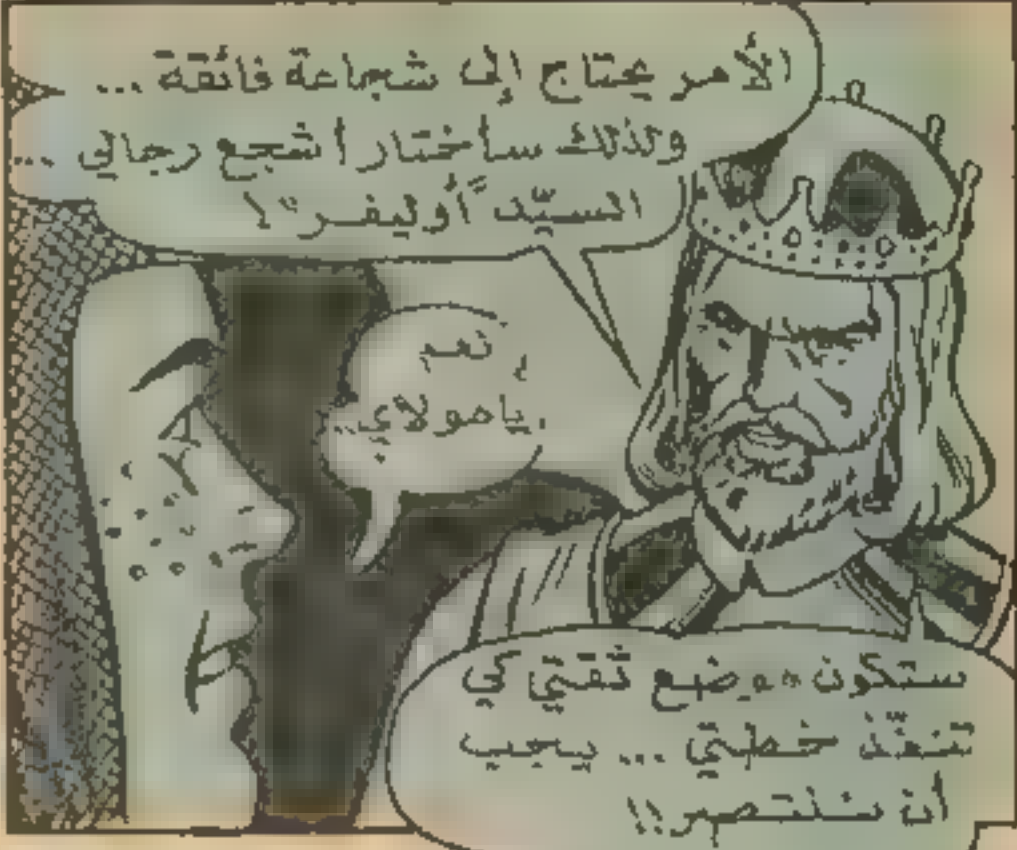 الأمر يحتاج إلى شجاعة فائقة ...
ولذلك سأختار أشجع رجالي ...
السيّد "أوليفر"!
نعم
يا مولاي..
ستكون موضع ثقتي كي
تنفّذ خطتي ... يجب
أن ننتصر!!